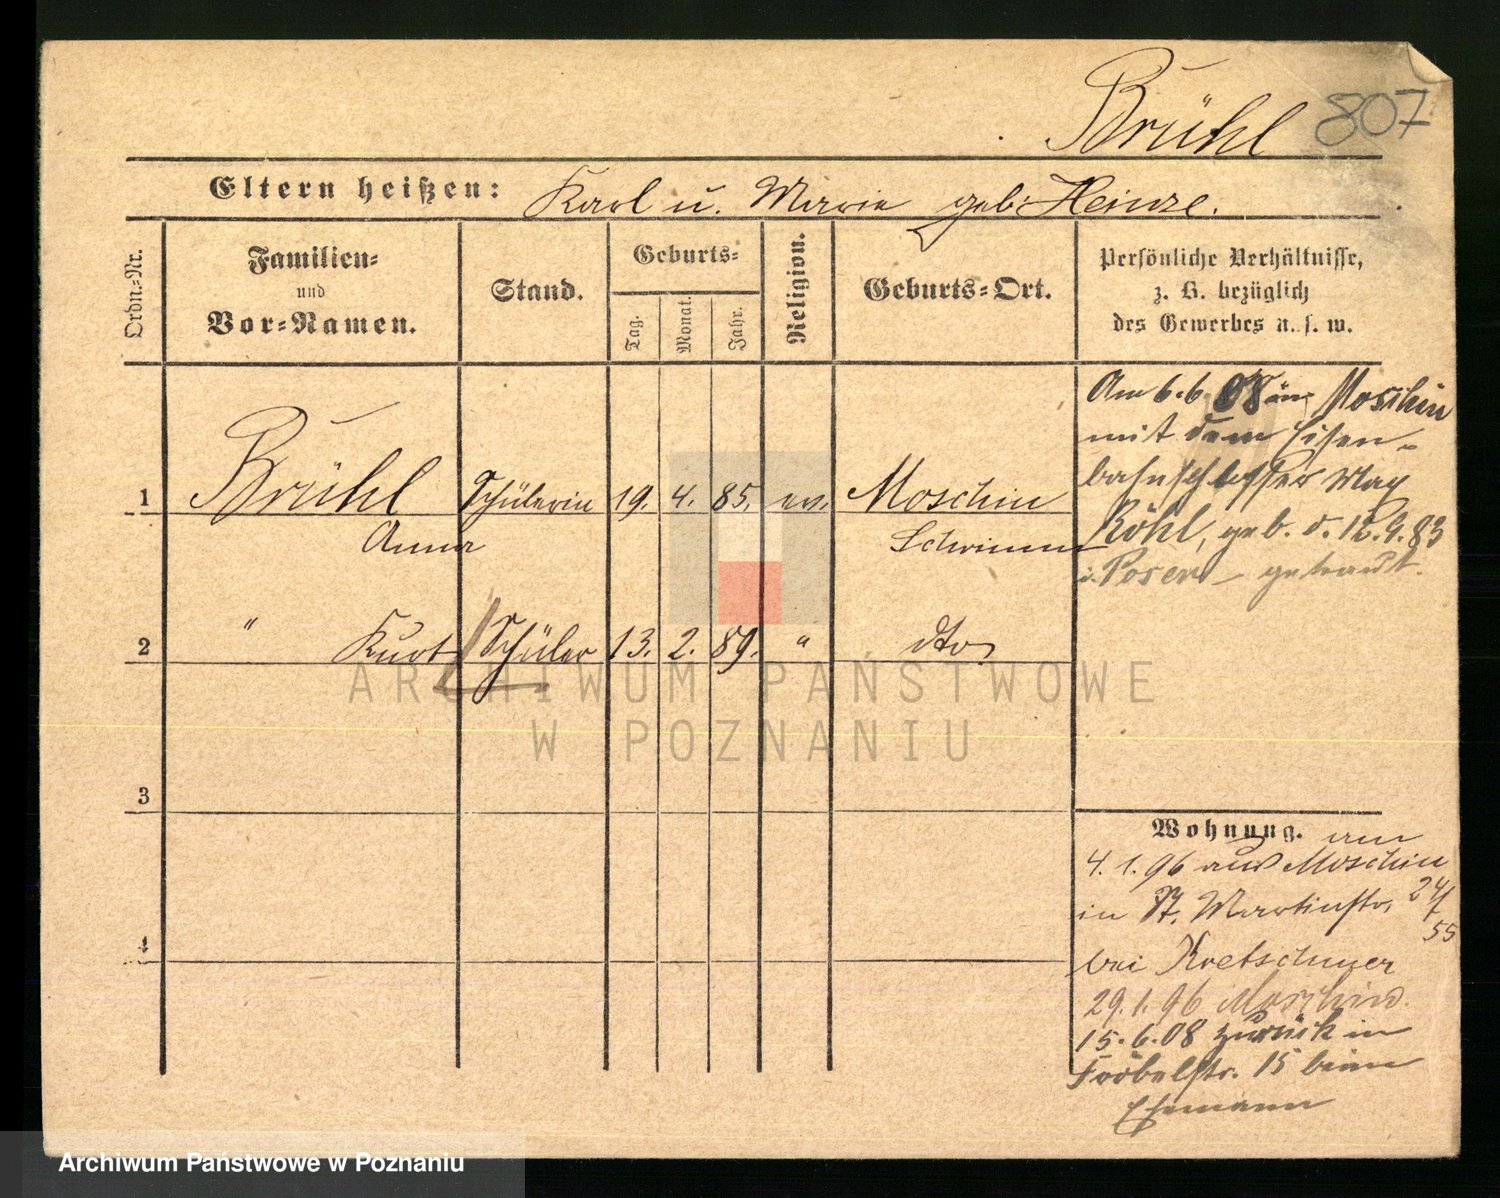 Brühl 807
Eltern heißen: Karl u. Marie geb: Heinze.
Ordn.-Nr.
Familien-
und
Vor-Namen.
Stand.
Geburts-
Tag.
Monat.
Jahr.
Religion.
Geburts-Ort.
Persönliche Verhältnisse,
z. B. bezüglich
des Gewerbes u. s. w.
1 Brühl Schülerin 19. 4. 85. ev. Moschin
Anna Schrimm
2 " Kurt Schüler 13. 2. 89. " dto
3
4
Am 6.6.08 in Moschin
mit dem Eisen-
bahnschlosser Max
Röhl, geb. d. 12.9.83
i. Posen getraut.
Wohnung. am
4.1.96 aus Moschin
in St. Martinstr. 24/
55
bei Kretschmer
29.1.96 Moschin.
15.6.08 zurück in
Fröbelstr. 15 beim
Ehemann
ARCHIWUM PAŃSTWOWE
W POZNANIU
Archiwum Państwowe w Poznaniu